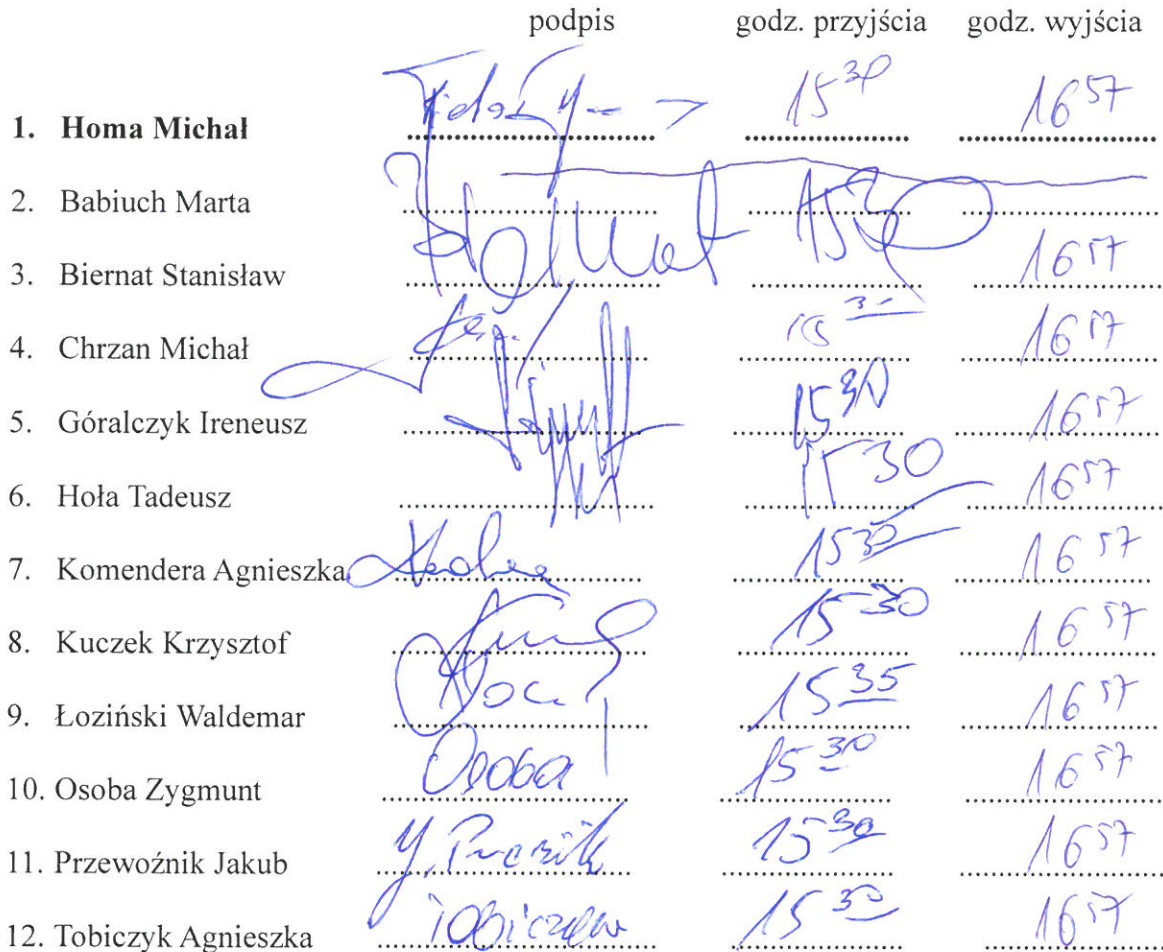 podpis godz. przyjścia godz. wyjścia
1. Homa Michał 15 30 16 57
2. Babiuch Marta
3. Biernat Stanisław 15 30 16 57
4. Chrzan Michał 16 57
5. Góralczyk Ireneusz 15 30 16 57
6. Hoła Tadeusz 15 30 16 57
7. Komendera Agnieszka 15 30 16 57
8. Kuczek Krzysztof 15 30 16 57
9. Łoziński Waldemar 15 35 16 57
10. Osoba Zygmunt Osoba 15 30 16 57
11. Przewoźnik Jakub 15 30 16 57
12. Tobiczyk Agnieszka 15 30 16 57